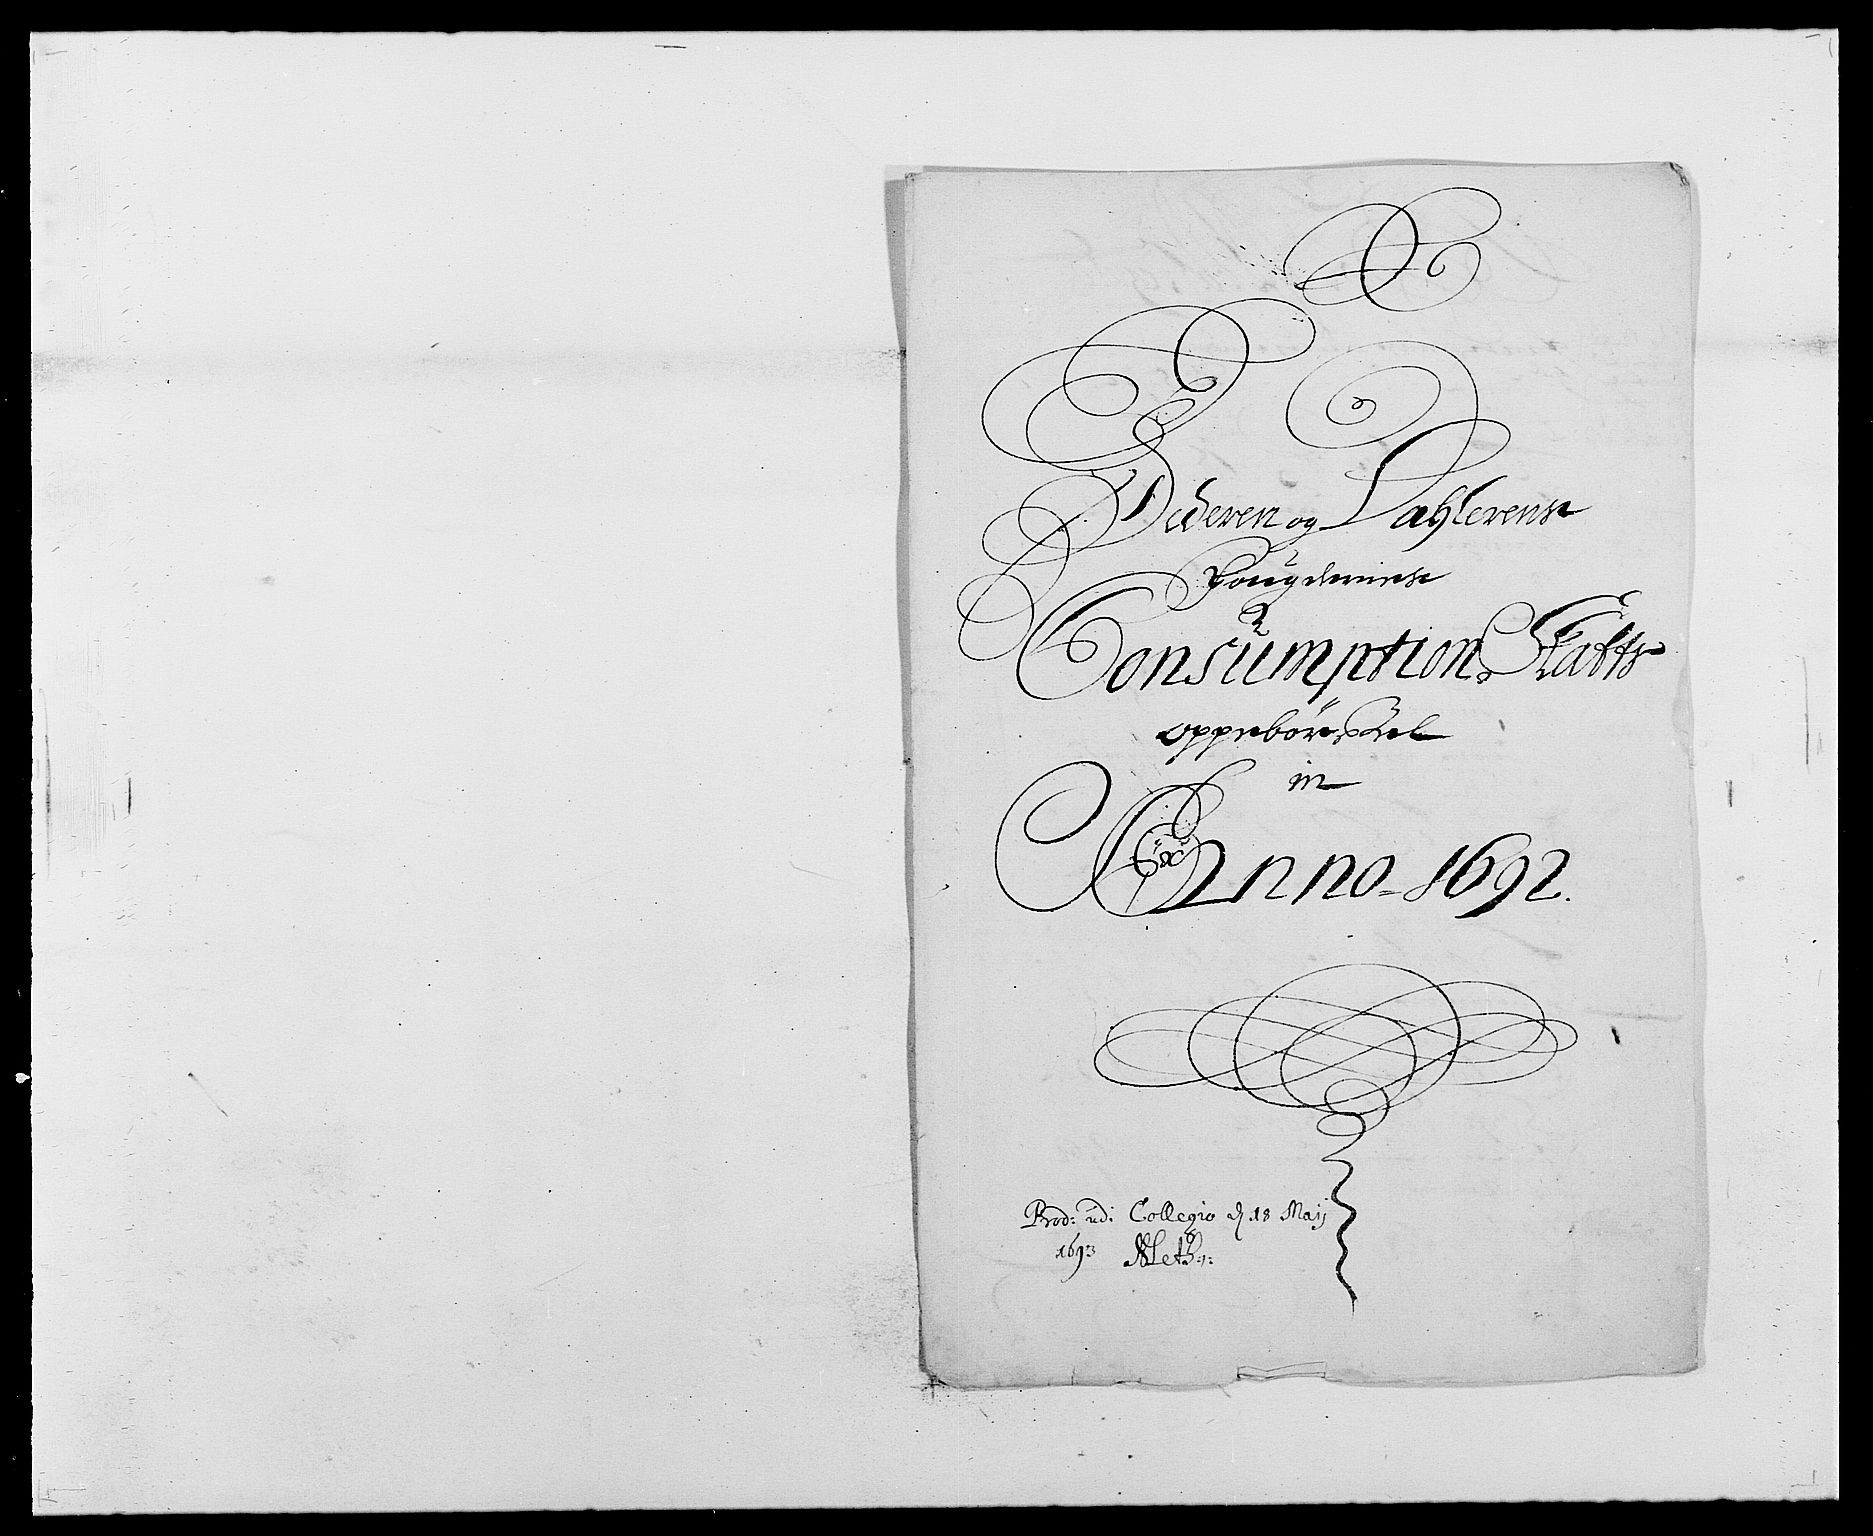 Jederen og Dahlerens
Fougderies
Consumptions Skatts
oppebørsel
in
Anno 1692.
Prod: udi Collegio d 18 Maij
1693